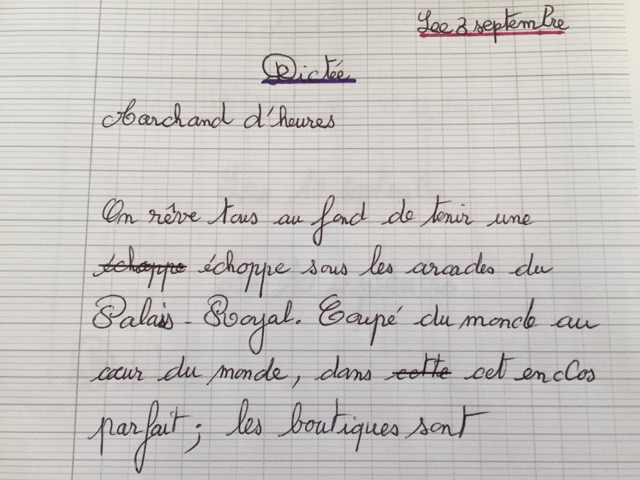 Lee 3 septembre
Dictée
Marchand d'heures
On rêve tous au fond de tenir une
échoppe échoppe sous les arcades du
Palais-Royal. Coupé du monde au
cœur du monde, dans cette cet enclos
parfait; les boutiques sont